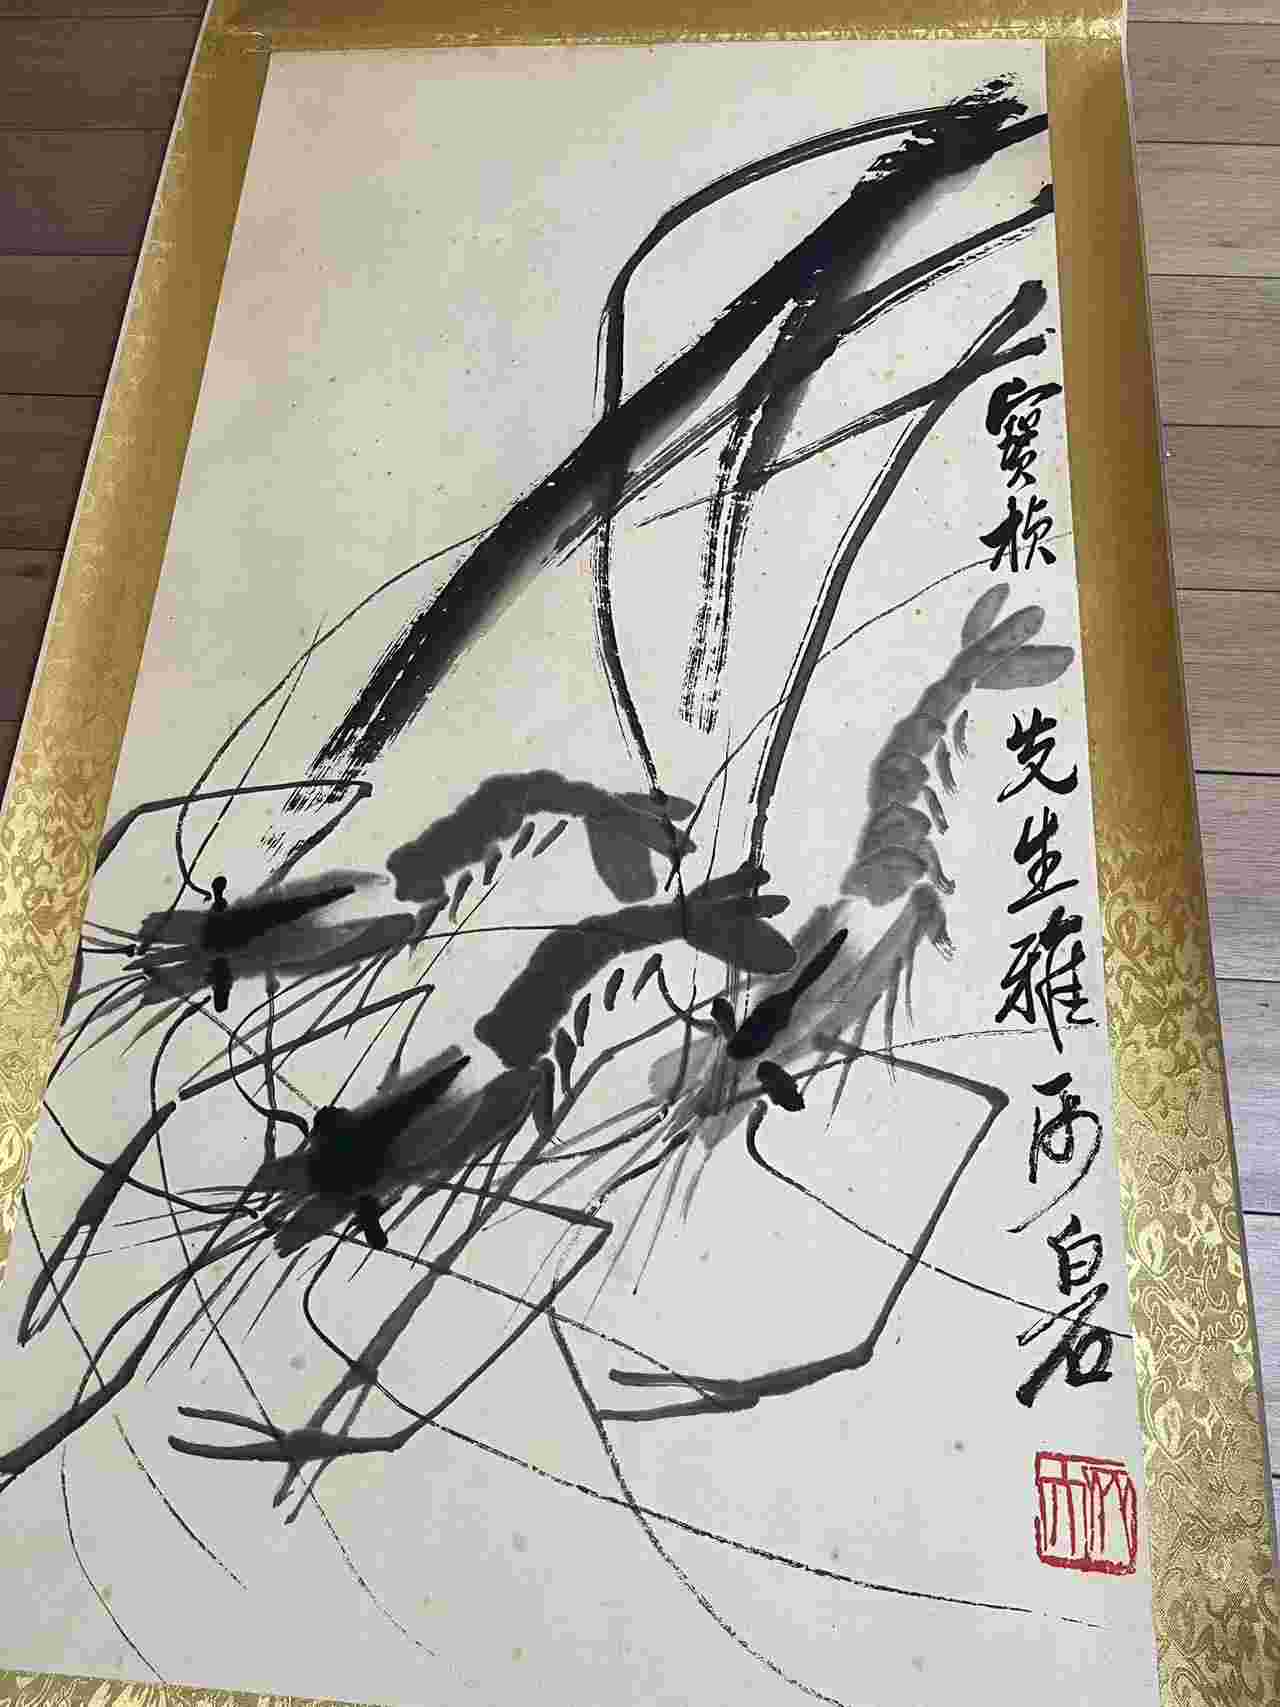 寶楨先生雅白石